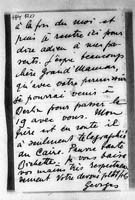 à la fin du mois et
puis à rentrer ici pour
dire adieu à mes pa-
rents. J'espère beaucoup
chère Grand'Maman
qu'avec votre permission
je pourrai venir à
pour passer le
19 avec vous. Mon
frère est en route il
a seulement télégraphié
du Caire. Pauvre tante
Je vous baise
vos mains très respectueu-
sement votre dévoué petit fils
Georges